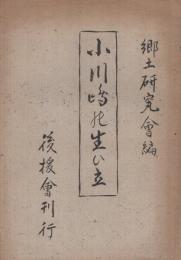 郷土研究會編
小川嶋の生ひ立
後援會刊行